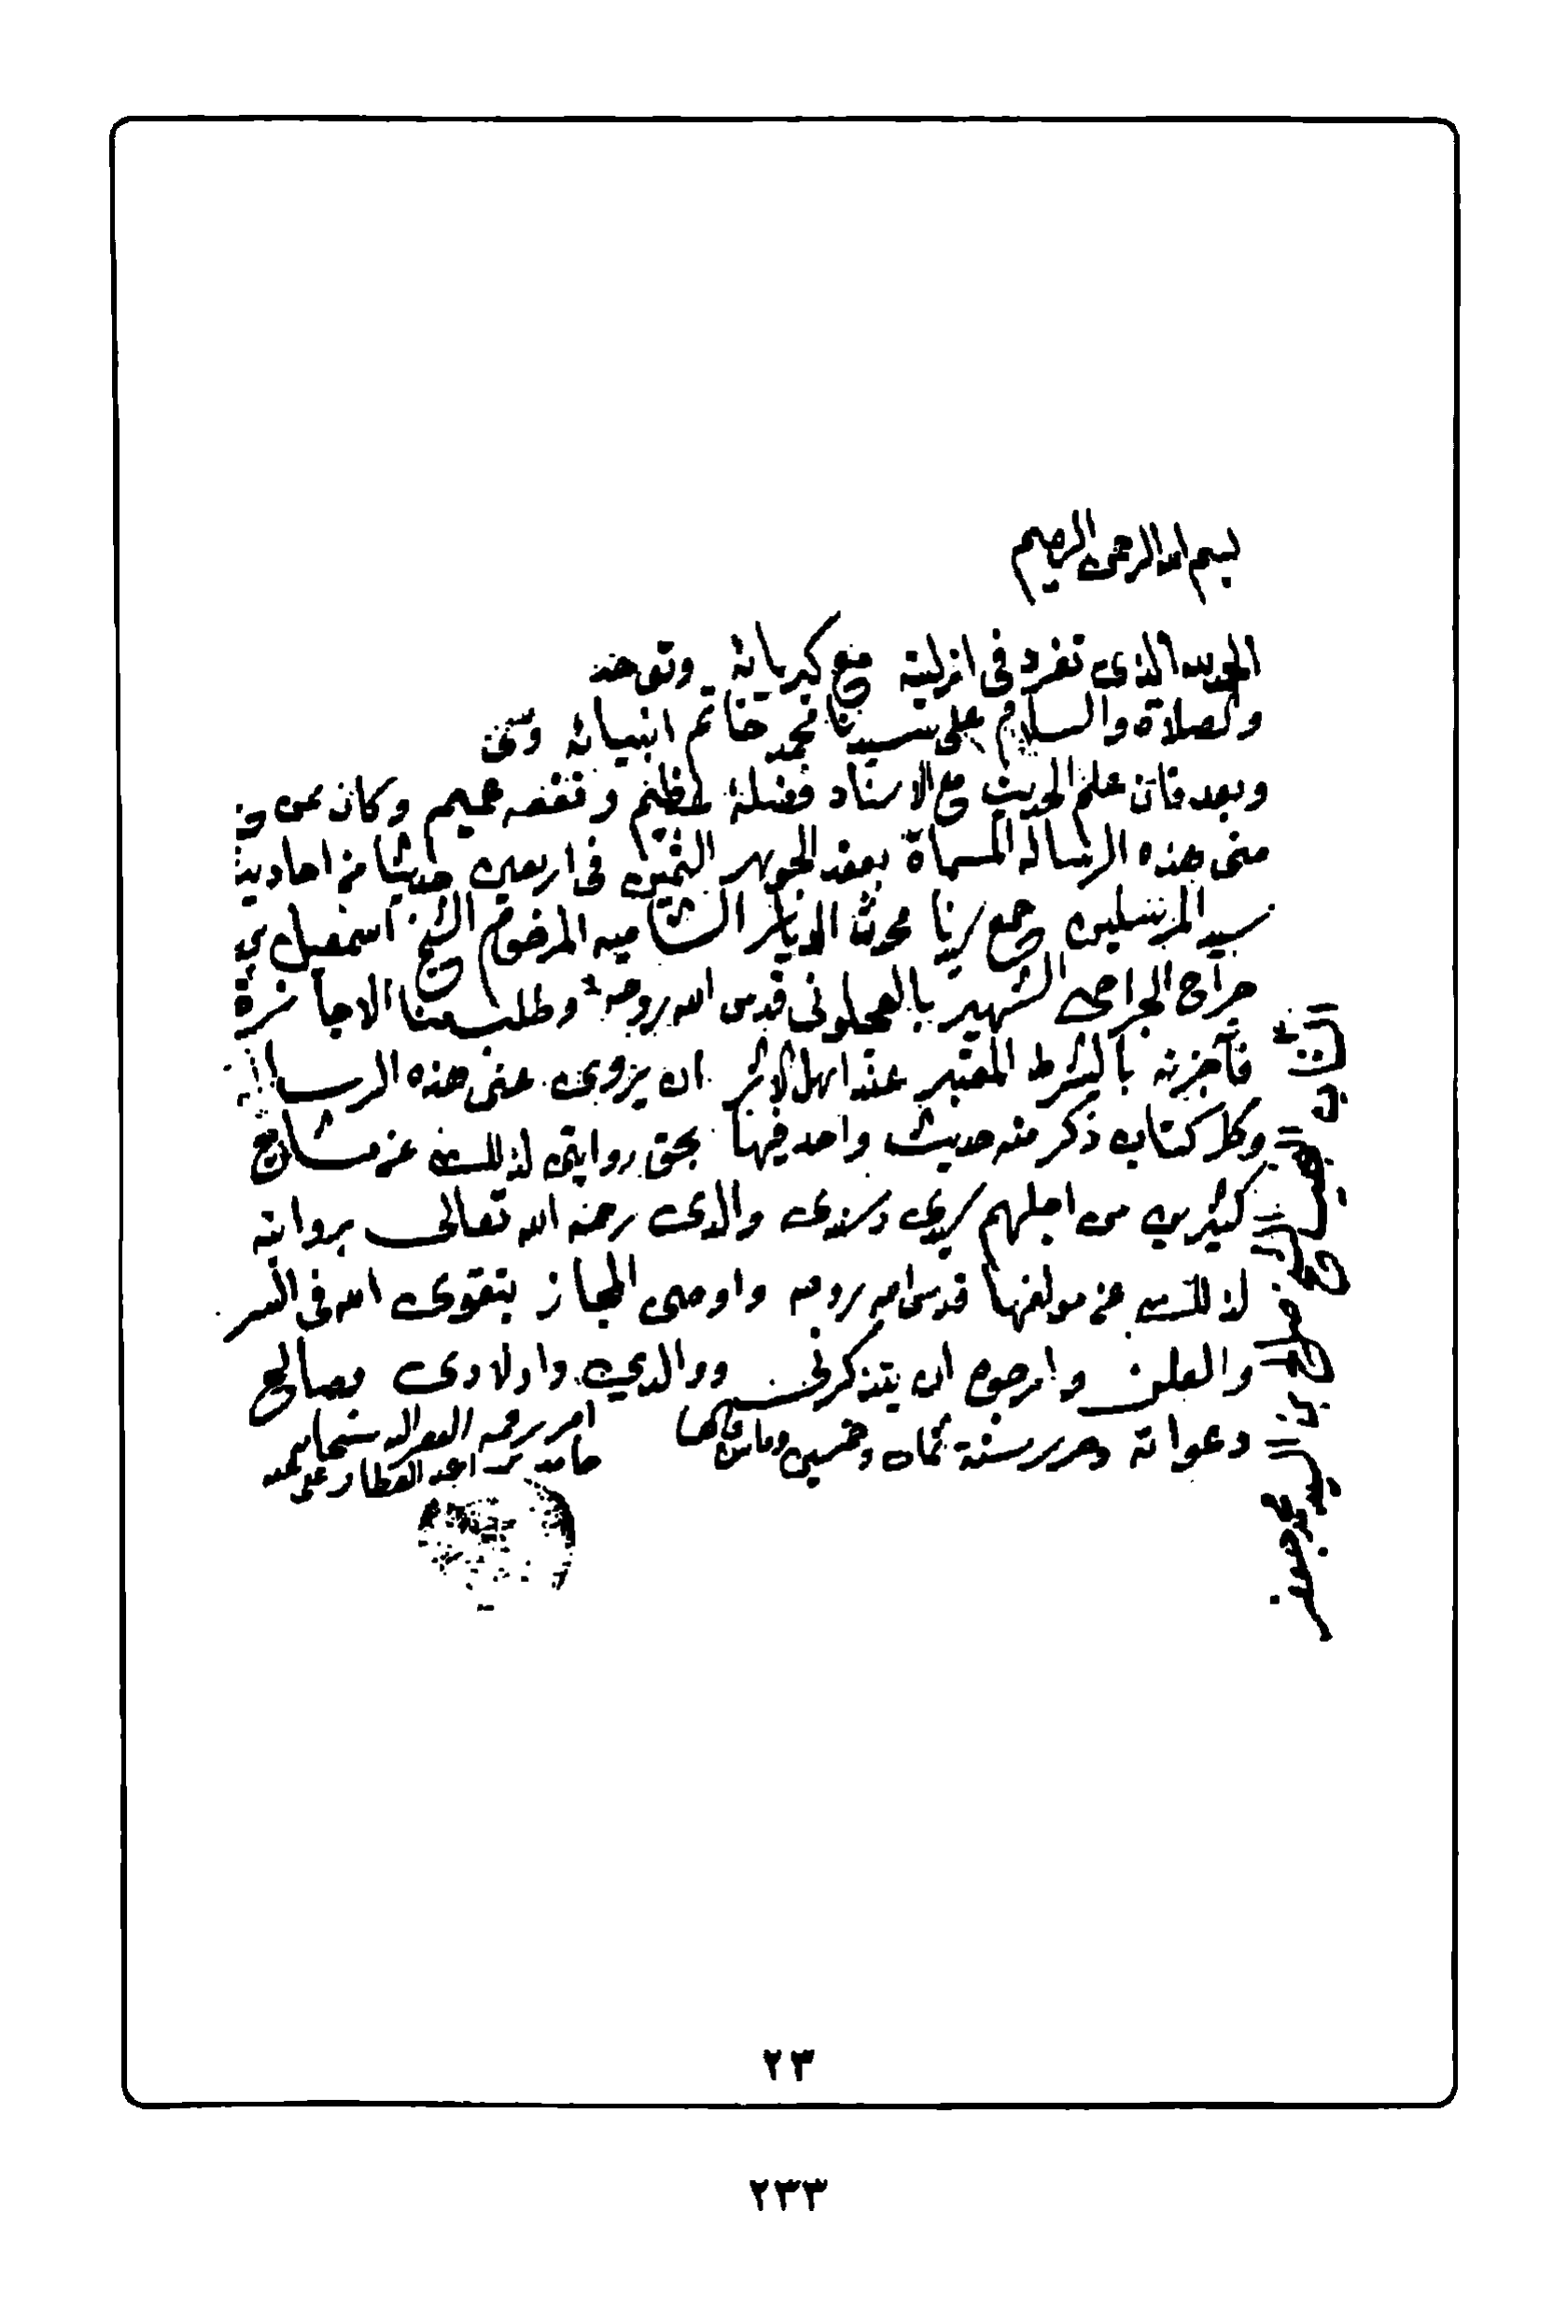 بسم الله الرحمن الرحيم
الحمد لله الذي تفرد في ازليته مع كبريائه وتوحد
والصلاة والسلام على سيدنا محمد خاتم انبيائه
وبعد فان علم الحديث مع الاسناد فضله عظيم ونفعه عميم وكان ممن
مني هذه الرسالة المسماة بعقد الجوهر الثمين في اربعين حديثا من احاديث
سيد المرسلين جمع سيدنا محدث الديار الشامية المرحوم الشيخ اسمعيل بن
جراح الجراحي الشهير بالعجلوني قدس الله روحه وطلب منا الاجازة
فأجزته بالشرط المعتبر عند اهل الاثر ان يروى عني هذه الرسالة
وكل كتاب ذكر منه حديث واحد فيها بحق روايتي لذلك عن مشايخ
كثيرين من اجلهم سيدي وسندي والدي رحمه الله تعالى بروايته
لذلك عن مولفها قدس الله روحه واوصى المجاز بتقوى الله في السر
والعلن وارجوه ان يتذكرني ووالدي واولادي وصالح
دعواته وحرر سنة ثمان وخمسين ومائتين والف
امر برقمه الفقير اليه سبحانه
حامد بن احمد العطار عفي عنه
٢٣
٢٣٣